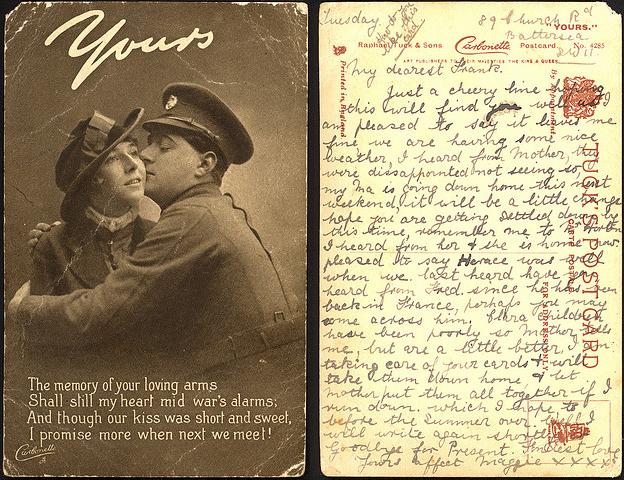 Yours
The memory of your loving arms
Shall still my heart mid war's alarms;
And though our kiss was short and sweet,
I promise more when next we meet!
Carbonette
Tuesday
89 Church Rd
Battersea
S.W.11.
"YOURS."
Raphael Tuck & Sons Carbonette Postcard. No. 4285
ART PUBLISHERS TO THEIR MAJESTIES THE KING & QUEEN
Printed in England
By Appointment
TUCK'S POST CARD
CARTE POSTALE
FOR CORRESPONDENCE
My dearest Frank.
Just a cheery line hoping
this will find you well as I
am pleased to say it leaves me
fine we are having some nice
weather, I heard from Mother, they
were disappointed not seeing
my Ma is going down home this next
weekend it will be a little change
hope you are getting settled down by
this time, remember me to
I heard from her & she is home now
pleased to say Horace was
when we last heard have
heard from Fred since he has been
back in France, perhaps you may
come across him. Clara children
have been poorly so Mother tells
me, but are a little better, I
taking care of your cards & will
take them down home, & let
mother put them all together if I
run down. which I hope to
before the summer over. Well I
will write again shortly
Goodbye for Present. Fondest love
Yours affect Maggie xxxx